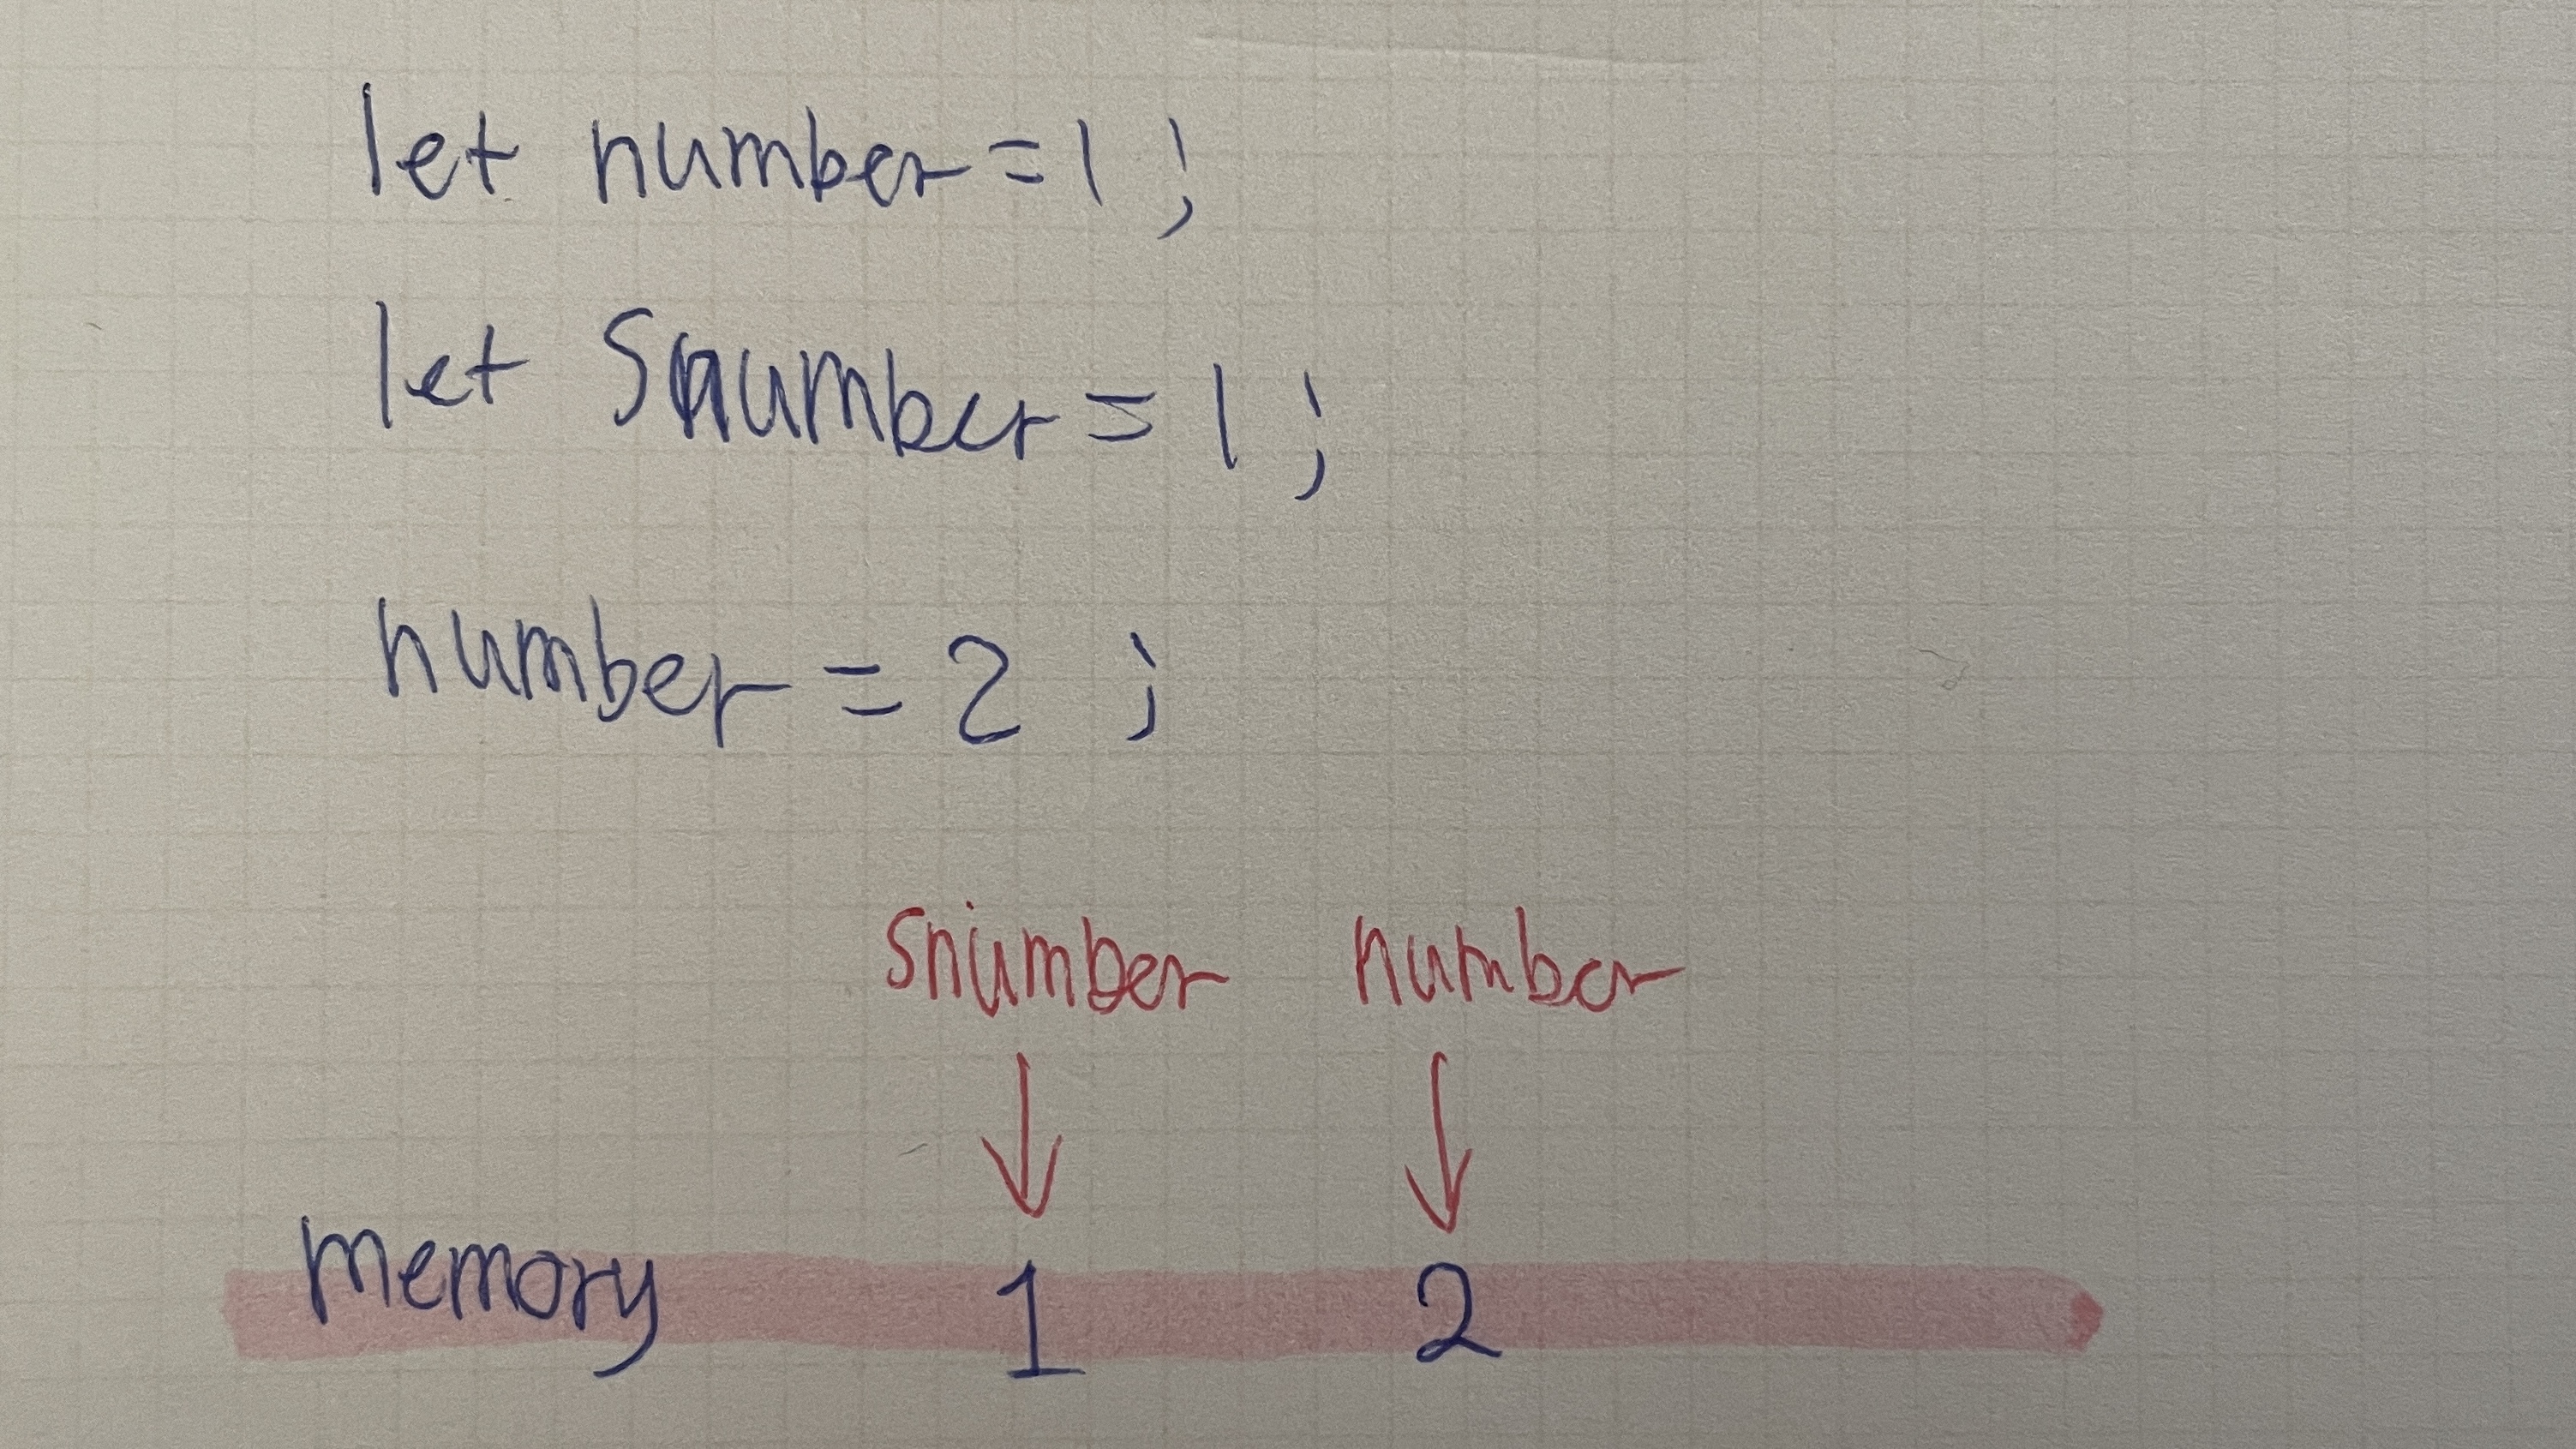 let number = 1 ;
let Snumber = 1 ;
number = 2 ;
snumber number
memory 1 2